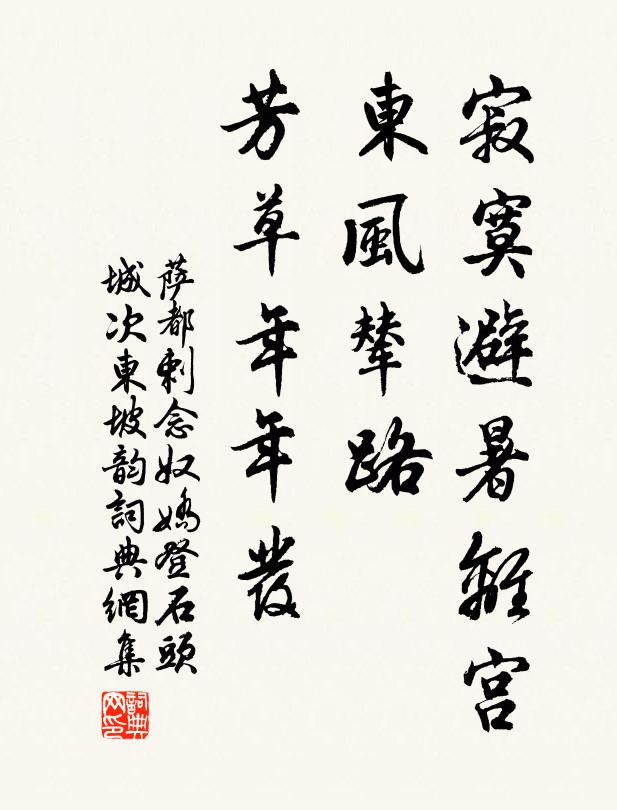 寂寞避暑離宮
東風輦路
芳草年年發
薩都剌念奴嬌登石頭
城次東坡韵詞典網集
詞典
网印